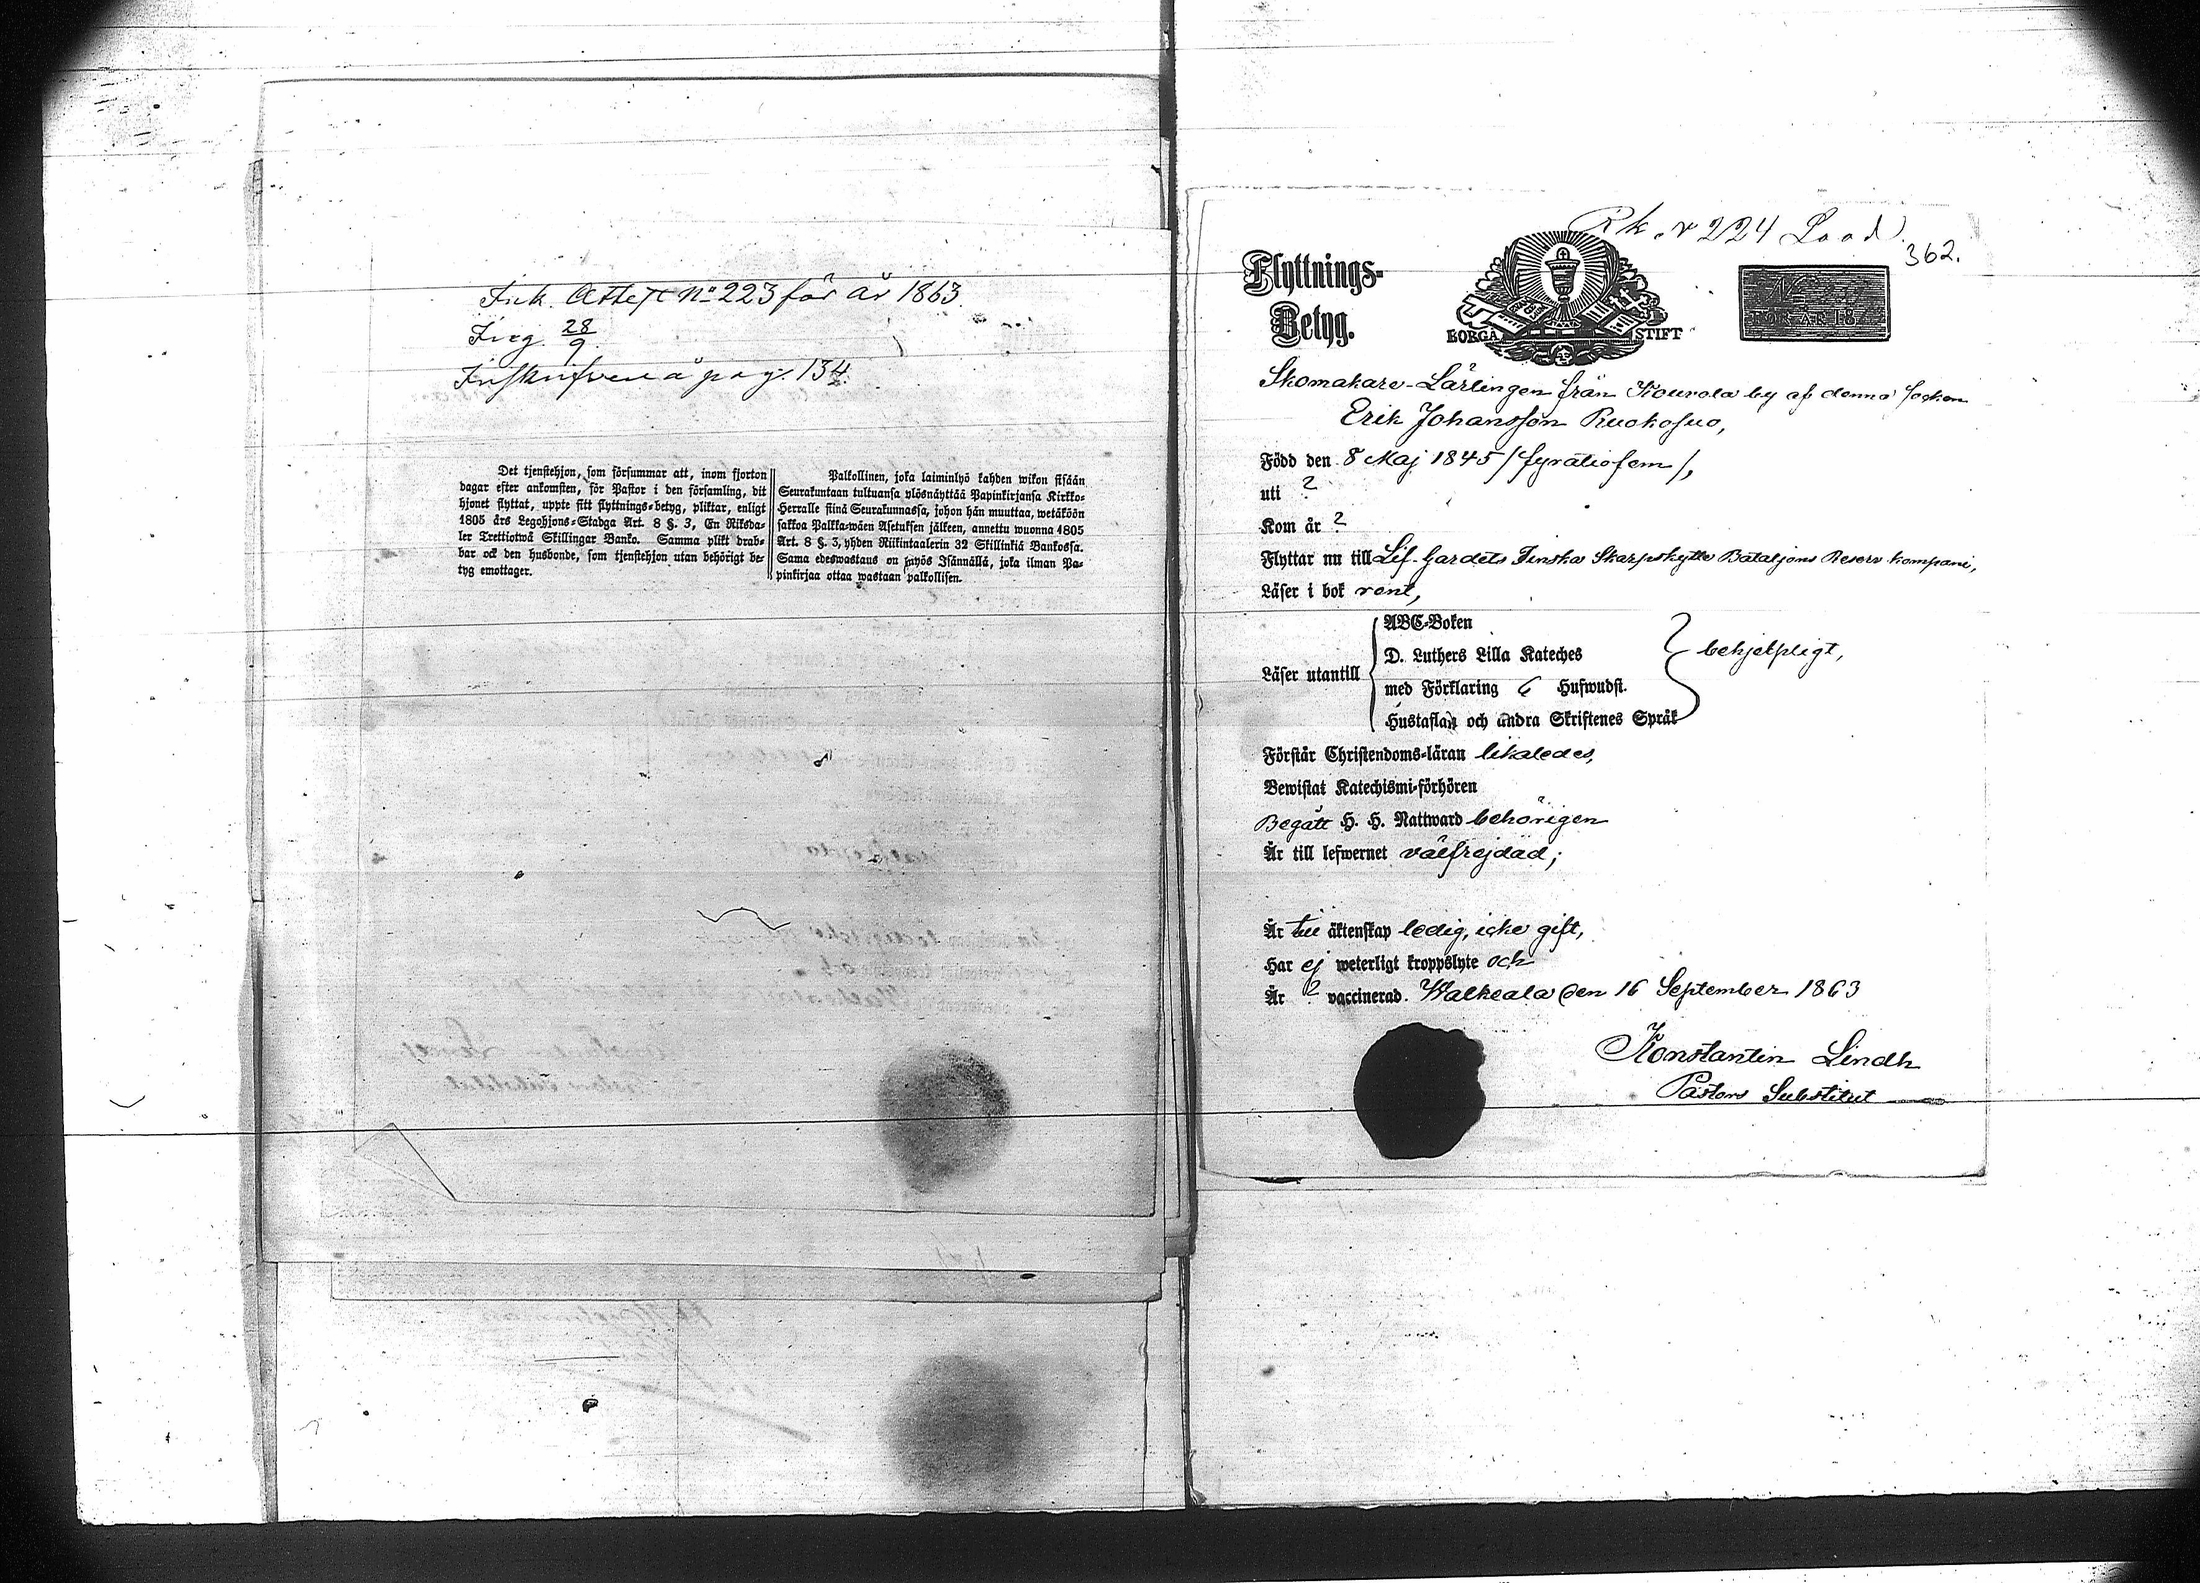 Ink. Attest No 223 för år 1863.
Ireg. 28/9.
Inskrifven å pag. 134.
Det tjenstehjon, som försummar att, inom fjorton
dagar efter ankomsten, för Pastor i den församling, dit
hjonet flyttat, uppte sitt flyttnings-betyg, pliktar, enligt
1805 års Legohjons-Stadga Art. 8 §. 3, En Riksda-
ler Trettiotwå Skillingar Banko. Samma plikt drab-
bar ock den husbonde, som tjenstehjon utan behörigt be-
tyg emottager.
Palkollinen, joka laiminlyö kahden wikon sisään
Seurakuntaan tultuansa ylösnäyttää Papinkirjansa Kirkko-
Herralle siinä Seurakunnassa, johon hän muuttaa, wetäköön
sakkoa Palkka-wäen Asetuksen jälkeen, annettu wuonna 1805
Art. 8 §. 3, yhden Riikintaalerin 32 Skillinkiä Bankossa.
Sama edeswastaus on myös Isännällä, joka ilman Pa-
pinkirjaa ottaa wastaan palkollisen.
224
362.
Flyttnings-
Betyg.
BORGÅ STIFT
FÖR ÅR 18
Skomakare-Lärlingen från Kouvola by af denna socken
Erik Johansson Ruokosuo,
Född den 8 Maj 1845 /fyratiofem/,
uti ?
Kom år ?
Flyttar nu till Lif-Gardets Finska Skarpskytte Bataljons Reserv kompani,
Läser i bok rent,
Läser utantill
ABC-Boken
D. Luthers Lilla Kateches
med Förklaring 6 Hufwudst.
Hustaflan och andra Skriftenes Språk
behjelpligt,
Förstår Christendoms-läran likaledes,
Bewistat Katechismi-förhören
Begått H. H. Nattward behörigen
Är till lefwernet välfrejdad;
Är till äktenskap ledig, icke gift,
Har ej weterligt kroppslyte och
Är ? vaccinerad. Walkeala den 16 September 1863
Konstantin Lindh
Pastors Substitut